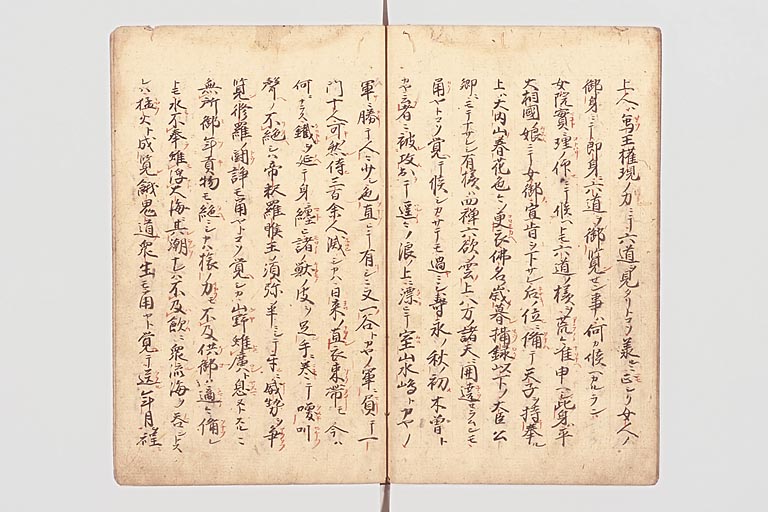 上人ハ蔵王権現ノ力ニテ六道ヲ見タリトコソ承ニ正ク女人ノ
御身ニテ即身六道ヲ御覧セン事ハ何カ候ヘカルラン
女院實ニ理仰ニテ候ヘトモ六道ノ様ヲ荒々准申ヘシ此身平
大相國娘ニテ女御宣旨ヲ下サレ后ノ位ニ備テ天子ヲ持奉ル
上ハ大内山春花色々ノ更衣佛名歳暮摂録以下ノ大臣公
卿ニモテナサレシ有様ハ四禅六欲ノ雲ノ上八万ノ諸天ニ囲遶セラムモ
角ヤトコソ覚テ候シカサテモ過ニシ壽永ノ秋ノ初木曽ト
カヤニ被攻落テ遥々ノ浪ノ上ニ漂テ室山水嶋トカヤノ
軍ニ勝テ人々少シ色直シテ有シニ又一谷トカヤノ軍ニ負テ一
門十人可然侍三百余人滅シカハ日来ノ直衣束帯モ今ハ
何ニナラス鐵ヲ延テ身ニ纏ヒ諸ノ獣ノ皮ヲ足手ニ巻テ喚叫
聲ノ不絶シハ帝釈羅睺王ノ須弥ノ半ニシテ互ニ威勢ヲ争
覧修羅ノ闘諍モ角ヤトコソ覚シカ山野雖廣ト息ストスルニ
無所御年貢物モ絶シカハ様ノ力モ不及供御ハ適々備シ
トモ水不奉雖浮大海其潮ナレハ不及飲ニ衆流海ヲ呑ントス
レハ猛火ト成覧餓鬼道衆生モ角ヤト覚テ送年月程